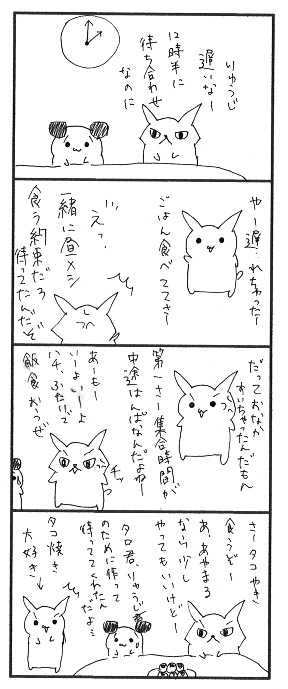 りゅうじ
遅いなー
12時半に
待ち合わせ
なのに
やー遅れちゃったー
ごはん食べててさー
えっ
一緒に昼メシ
食う約束だろ
待ってたんだぞ
だっておなか
すいちゃったんだもん
第一さー集合時間が
中途はんぱなんだよねー
チッ
あーもー
いーよいーよ
ハチ、ふたりで
飯食おうぜ
さータコやき
食うぞー
あ、あやまる
なら少し
やってもいいけどー
タロ君、りゅうじ
のために作って
待っててくれたん
だよ…
タコ焼き
大好き